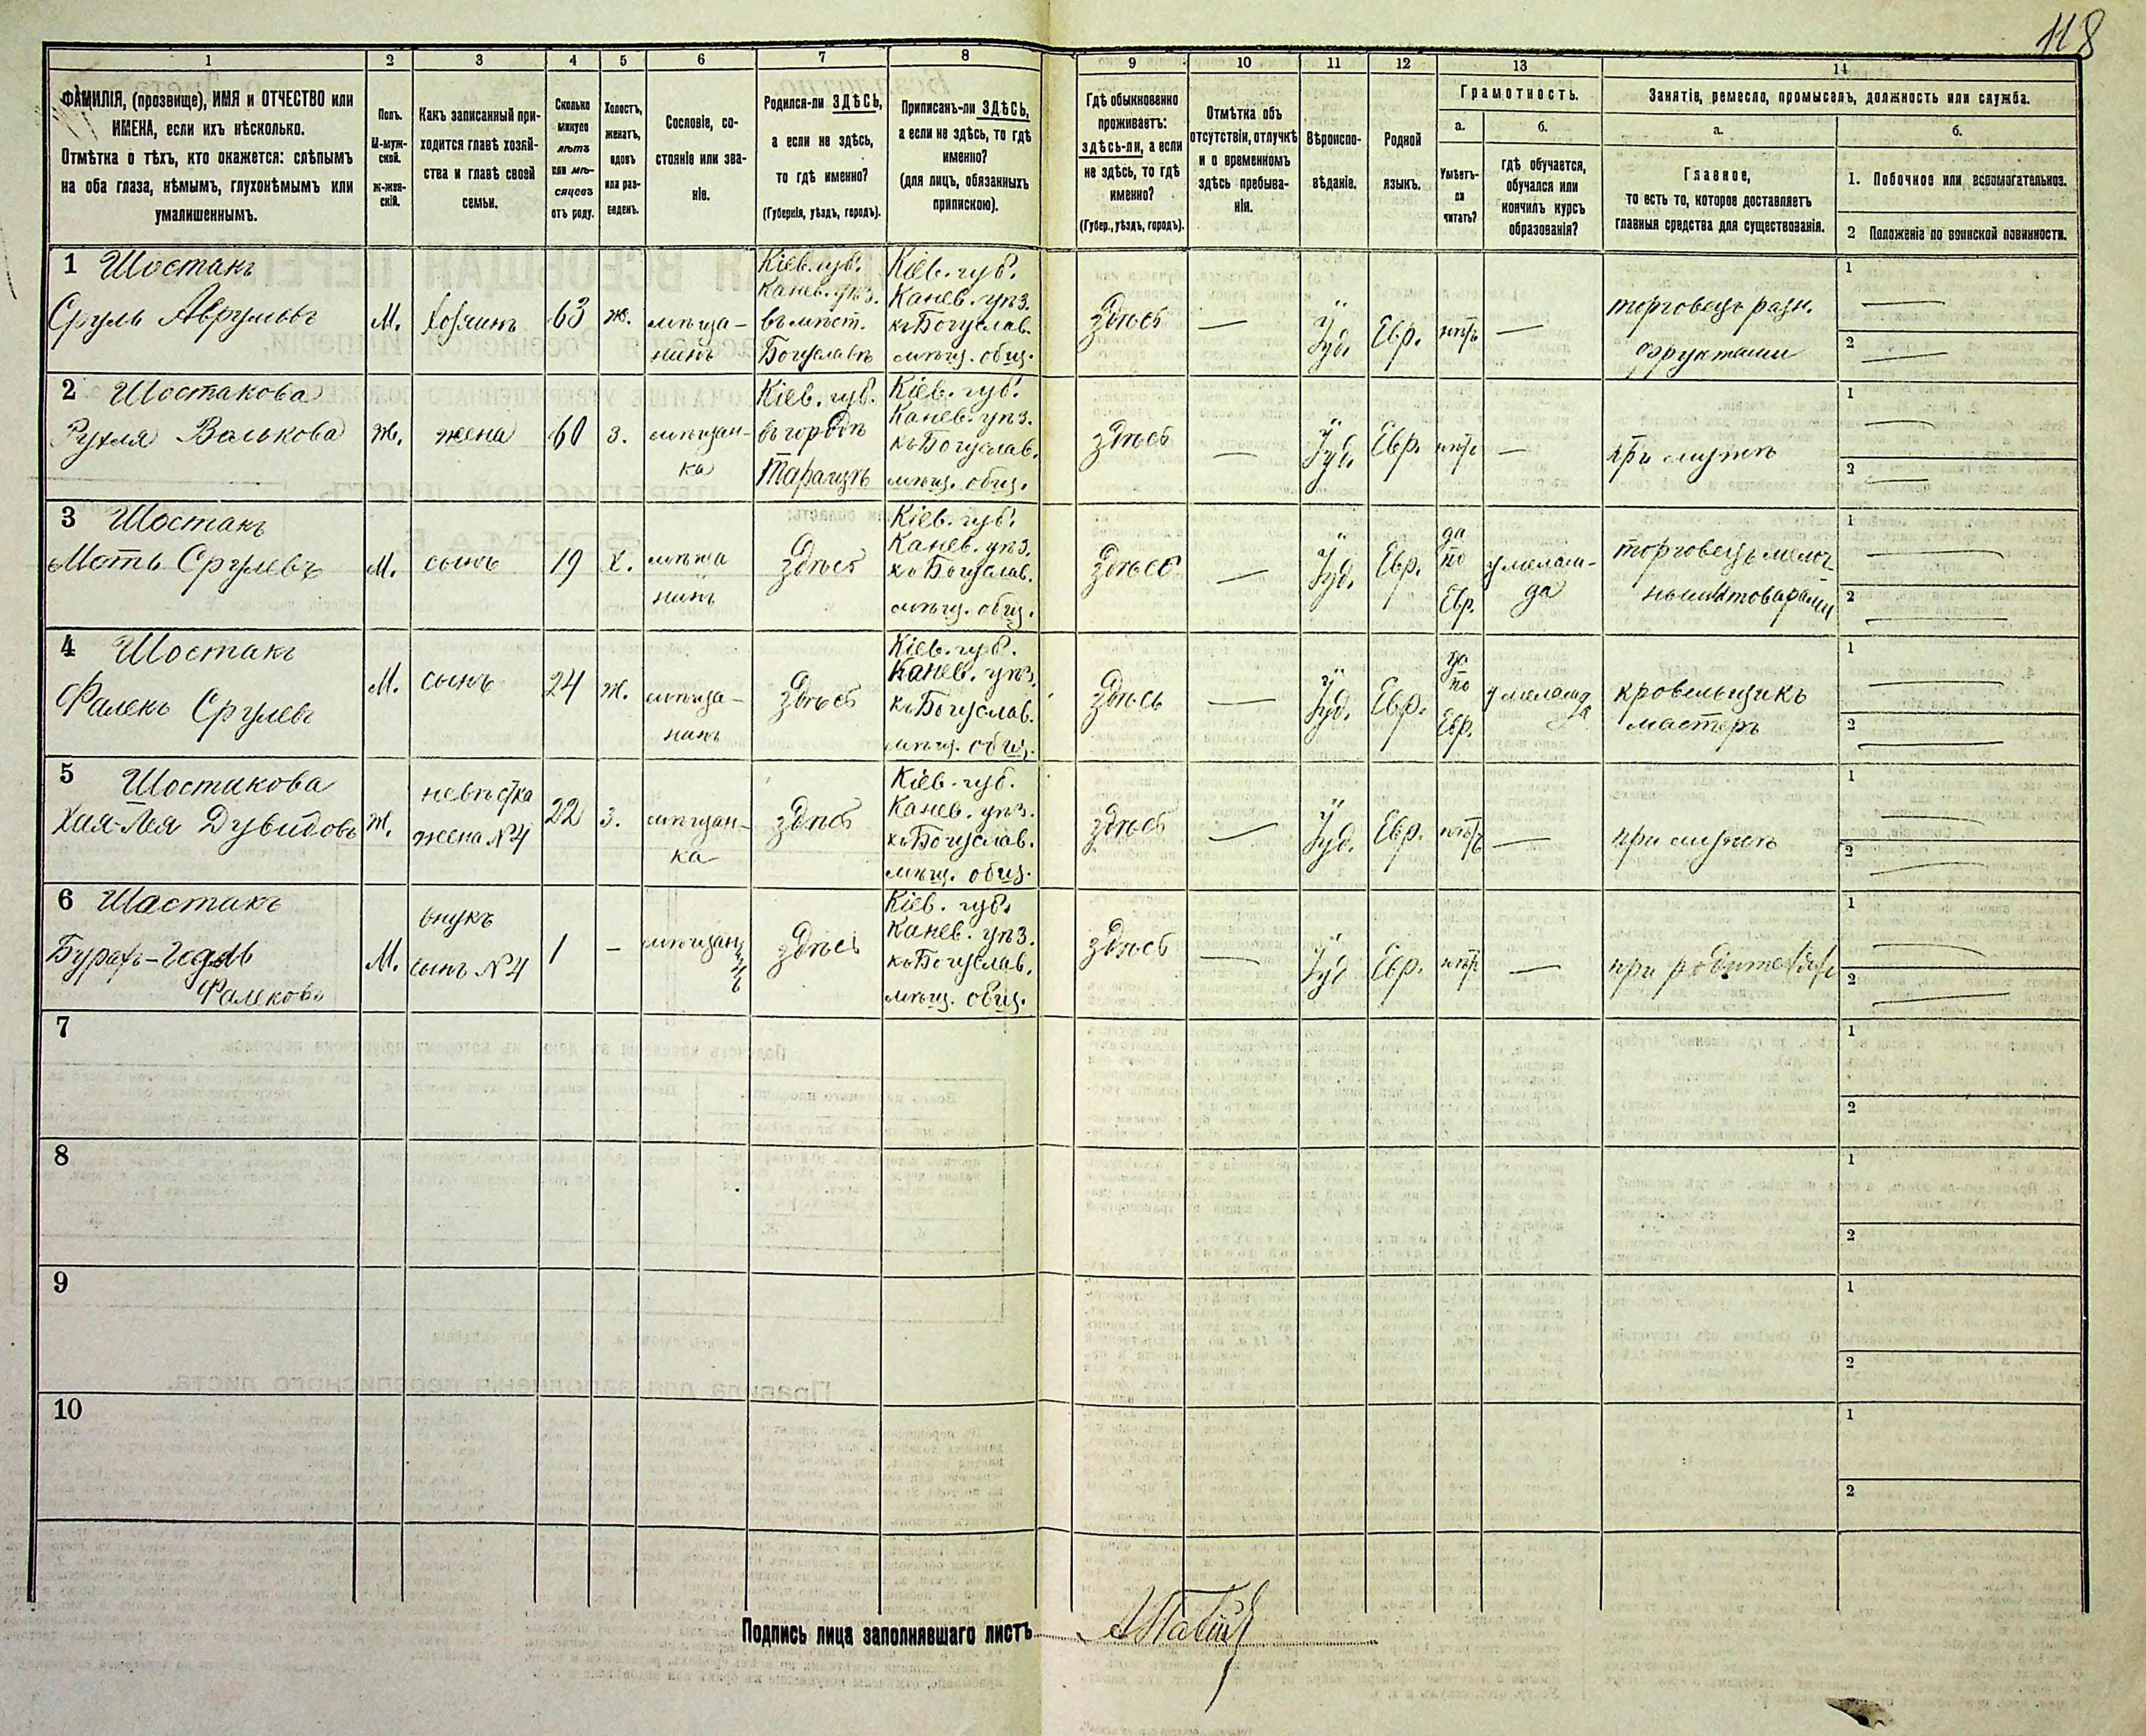 118
1 2 3 4 5 6 7 8 9 10 11 12 13 14
ФАМИЛІЯ, (прозвище), ИМЯ и ОТЧЕСТВО или
ИМЕНА, если ихъ нѣсколько.
Отмѣтка о тѣхъ, кто окажется: слѣпымъ
на оба глаза, нѣмымъ, глухонѣмымъ или
умалишеннымъ.
Полъ.
М-муж-
ской.
ж-жен-
скій.
Какъ записанный при-
ходится главѣ хозяй-
ства и главѣ своей
семьи.
Сколько
минуло
лѣтъ
или мѣ-
сяцевъ
отъ роду.
Холостъ,
женатъ,
вдовъ
или раз-
веденъ.
Сословіе, со-
стояніе или зва-
ніе.
Родился-ли ЗДѢСЬ,
а если не здѣсь,
то гдѣ именно?
(Губернія, уѣздъ, городъ).
Приписанъ-ли ЗДѢСЬ,
а если не здѣсь, то гдѣ
именно?
(для лицъ, обязанныхъ
припискою).
Гдѣ обыкновенно
проживаетъ:
здѣсь-ли, а если
не здѣсь, то гдѣ
именно?
(Губер., уѣздъ, городъ).
Отмѣтка объ
отсутствіи, отлучкѣ
и о временномъ
здѣсь пребыва-
ніи.
Вѣроиспо-
вѣданіе.
Родной
языкъ.
Грамотность.
а.
Умѣетъ-
ли
читать?
б.
гдѣ обучается,
обучался или
кончилъ курсъ
образованія?
Занятіе, ремесло, промыселъ, должность или служба.
а.
Главное,
то есть то, которое доставляетъ
главныя средства для существованія.
б.
1. Побочное или вспомогательное.
2 Положеніе по воинской повинности.
1 Шостакъ
Сруль Аврумовъ
М.
хозяинъ
63
ж.
мѣща-
нинъ
Кіев. губ.
Канев. уѣз.
въ мѣст.
Богуславѣ
Кіев. губ.
Канев. уѣз.
къ Богуслав.
мѣщ. общ.
Здѣсь
—
Іуд.
Евр.
нѣтъ
—
торговецъ разн.
фруктами
1 —
2 —
2 Шостакова
Рухля Волькова
Ж.
жена
60
з.
мѣщан-
ка
Кіев. губ.
въ городѣ
Таращѣ
Кіев. губ.
Канев. уѣз.
къ Богуслав.
мѣщ. общ.
здѣсь
—
Іуд.
Евр.
нѣтъ
—
при мужѣ
1 —
2 —
3 Шостакъ
Моть Срулевъ
М.
сынъ
19
х.
мѣща
нинъ
Здѣсь
Кіев. губ.
Канев. уѣз.
къ Богуслав.
мѣщ. общ.
Здѣсь
—
Іуд.
Евр.
да
по
Евр.
у мелам-
да
торговецъ мелоч-
ными товарами
1 —
2 —
4 Шостакъ
Фалекъ Срулевъ
М.
сынъ
24
ж.
мѣща-
нинъ
Здѣсь
Кіев. губ.
Канев. уѣз.
къ Богуслав.
мѣщ. общ.
Здѣсь
—
Іуд.
Евр.
да
по
Евр.
у мелам
да
кровельщикъ
мастеръ
1 —
2 —
5 Шостакова
Хая-Лея Дувидова
Ж.
невѣстка
жена №4
22
з.
мѣщан-
ка
здѣсь
Кіев. губ.
Канев. уѣз.
къ Богуслав.
мѣщ. общ.
здѣсь
—
Іуд.
Евр.
нѣтъ
—
при мужѣ
1 —
2 —
6 Шостакъ
Бурахъ-Гедаль
Фалековъ
М.
внукъ
сынъ №4
1
–
мѣщан
инъ
здѣсь
Кіев. губ.
Канев. уѣз.
къ Богуслав.
мѣщ. общ.
здѣсь
—
Іуд
Евр.
нѣтъ
—
при родителяхъ
1 —
2 —
7
1
2
8
1
2
9
1
2
10
1
2
Подпись лица заполнявшаго листъ